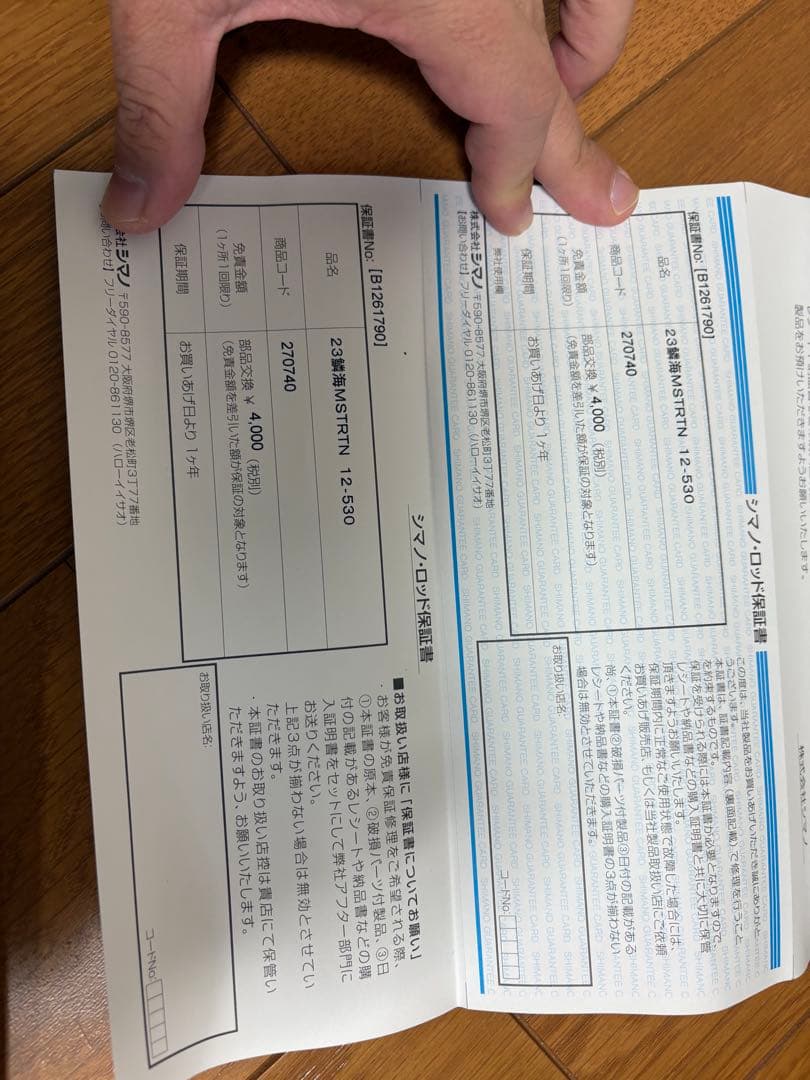 製品をお預けいただきますようお願いいたします。
シマノ・ロッド保証書
保証書No: [B1261790]
品名
23鱗海MSTRTN 12-530
商品コード
270740
免責金額
(1ヶ所1回限り)
部品交換 ¥ 4,000 (税別)
(免責金額を差引いた額が保証の対象となります)
保証期間
お買いあげ日より 1ヶ年
弊社使用欄
株式会社シマノ 〒590-8577 大阪府堺市堺区老松町3丁77番地
【お問い合わせ】フリーダイヤル 0120-861130 (ハローイイサオ)
この度は、当社製品をお買いあげいただき誠にありがと
うございます。
本証書は、証書記載内容(裏面記載)で修理を行うこと
を約束するものです。
保証を受けられる際には本証書が必要となりますので、
レシートや納品書などの購入証明書と共に大切に保管
頂きますようお願いいたします。
保証期間内に正常なご使用状態で故障した場合には、
お買いあげ販売店、もしくは当社製品取扱い店にご依頼
ください。
尚、①本証書②破損パーツ付製品③日付の記載がある
レシートや納品書などの購入証明書の3点が揃わない
場合は無効とさせていただきます。
お取り扱い店名:
コードNo.
シマノ・ロッド保証書
保証書No: [B1261790]
品名
23鱗海MSTRTN 12-530
商品コード
270740
免責金額
(1ヶ所1回限り)
部品交換 ¥ 4,000 (税別)
(免責金額を差引いた額が保証の対象となります)
保証期間
お買いあげ日より 1ヶ年
会社シマノ 〒590-8577 大阪府堺市堺区老松町3丁77番地
問い合わせ】フリーダイヤル 0120-861130 (ハローイイサオ)
■お取扱い店様に「保証書についてお願い」
・お客様が免責保証修理をご希望される際、
①本証書の原本、②破損パーツ付製品、③日
付の記載があるレシートや納品書などの購
入証明書をセットにして弊社アフター部門に
お送りください。
上記3点が揃わない場合は無効とさせてい
ただきます。
・本証書のお取り扱い店控は貴店にて保管い
ただきますよう、お願いいたします。
お取り扱い店名:
コードNo.